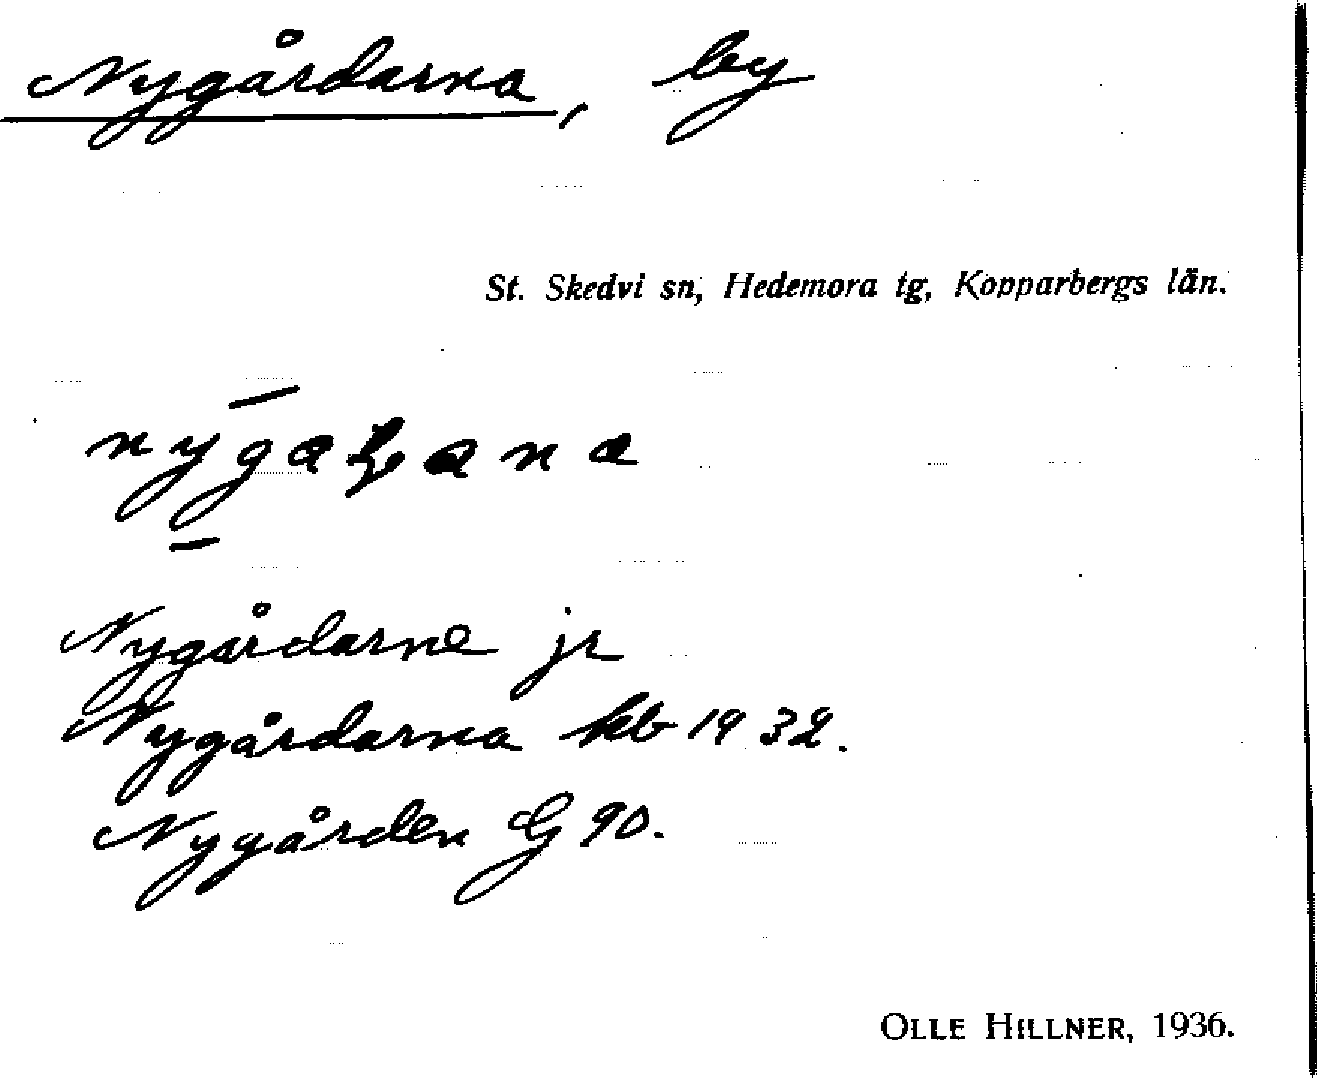 Nygårdarna, by
St. Skedvi sn, Hedemora tg, Kopparbergs län.
Nygårdarne jr
Nygårdarna kb 1932.
Nygården G 90.
OLLE HILLNER, 1936.